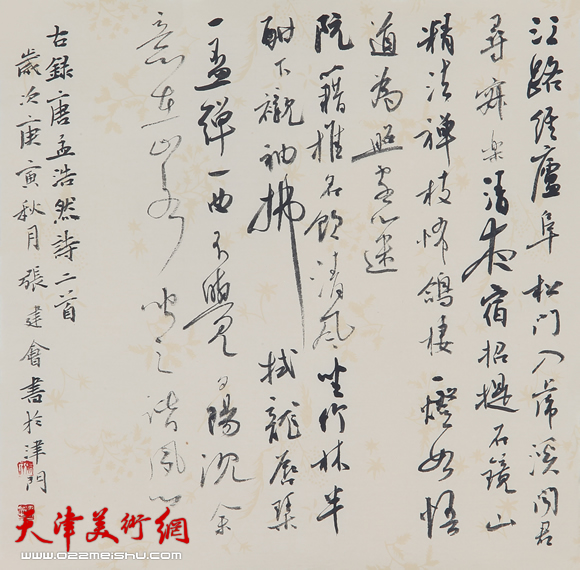 江路經廬阜松門入虎溪聞君
尋寂樂清夜宿招提石鏡山
精怯禪枝怖鴿棲一燈如悟
道為照客心迷
阮籍推名飲清風坐竹林半
酣下襯袖拂拭龍唇琴
一盃彈一曲不覺夕陽沉余
意在山水聞之諧夙心
右錄唐孟浩然詩二首
歲次庚寅秋月張建會書於津門
天津美術網
www.022meishu.com